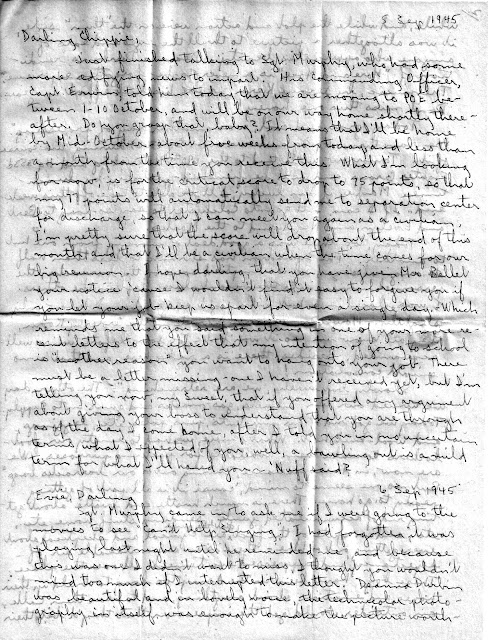 5 Sep, 1945
Darling Chippie,
Just finished talking to Sgt. Murphy, who had some
more edifying news to impart. His Commanding Officer,
Capt. told him today that we are moving to POE be-
tween 1-10 October, and will be on our way home shortly there-
after. Do you grasp that, baby? It means that I'll be home
by Mid-October about five weeks from today and less than
a month from the time you receive this. What I'm looking
for now, is for the critical score to drop to 75 points, so that
my 77 points will automatically send me to separation center
for discharge so that I can meet you again as a civilian.
I'm pretty sure that the score will drop about the end of this
month, and that I'll be a civilian when the time comes for our
big reunion. I hope, darling, that you have given Mr.
your notice, 'cause I wouldn't find it easy to forgive you if
you let your job keep us apart for even a single day. Which
reminds me that you said something in one of your re-
cent letters to the effect that my intention of going to school
is "another reason" you want to hang onto your job. There
must be a letter missing - one I haven't received yet, but I'm
telling you now, my Sweet, that if you offered any argument
about giving your boss to understand that you are through
as of the day I come home, after I told you in no uncertain
terms, what I expected of you, well, a bawling out is a mild
term for what I'll hand you. 'Nuff said?
6 Sep 1945
Evie, Darling
Sgt. Murphy came in to ask me if I were going to the
movies to see "Can't Help Singing". I had forgotten it was
playing last night until he reminded me, and because
this was one I didn't want to miss, I thought you wouldn't
mind too much if I interrupted this letter. Deanna Durbin
was beautiful and in lovely voice, the technicolor photo-
graphy, in itself, was enough to make the picture worth-